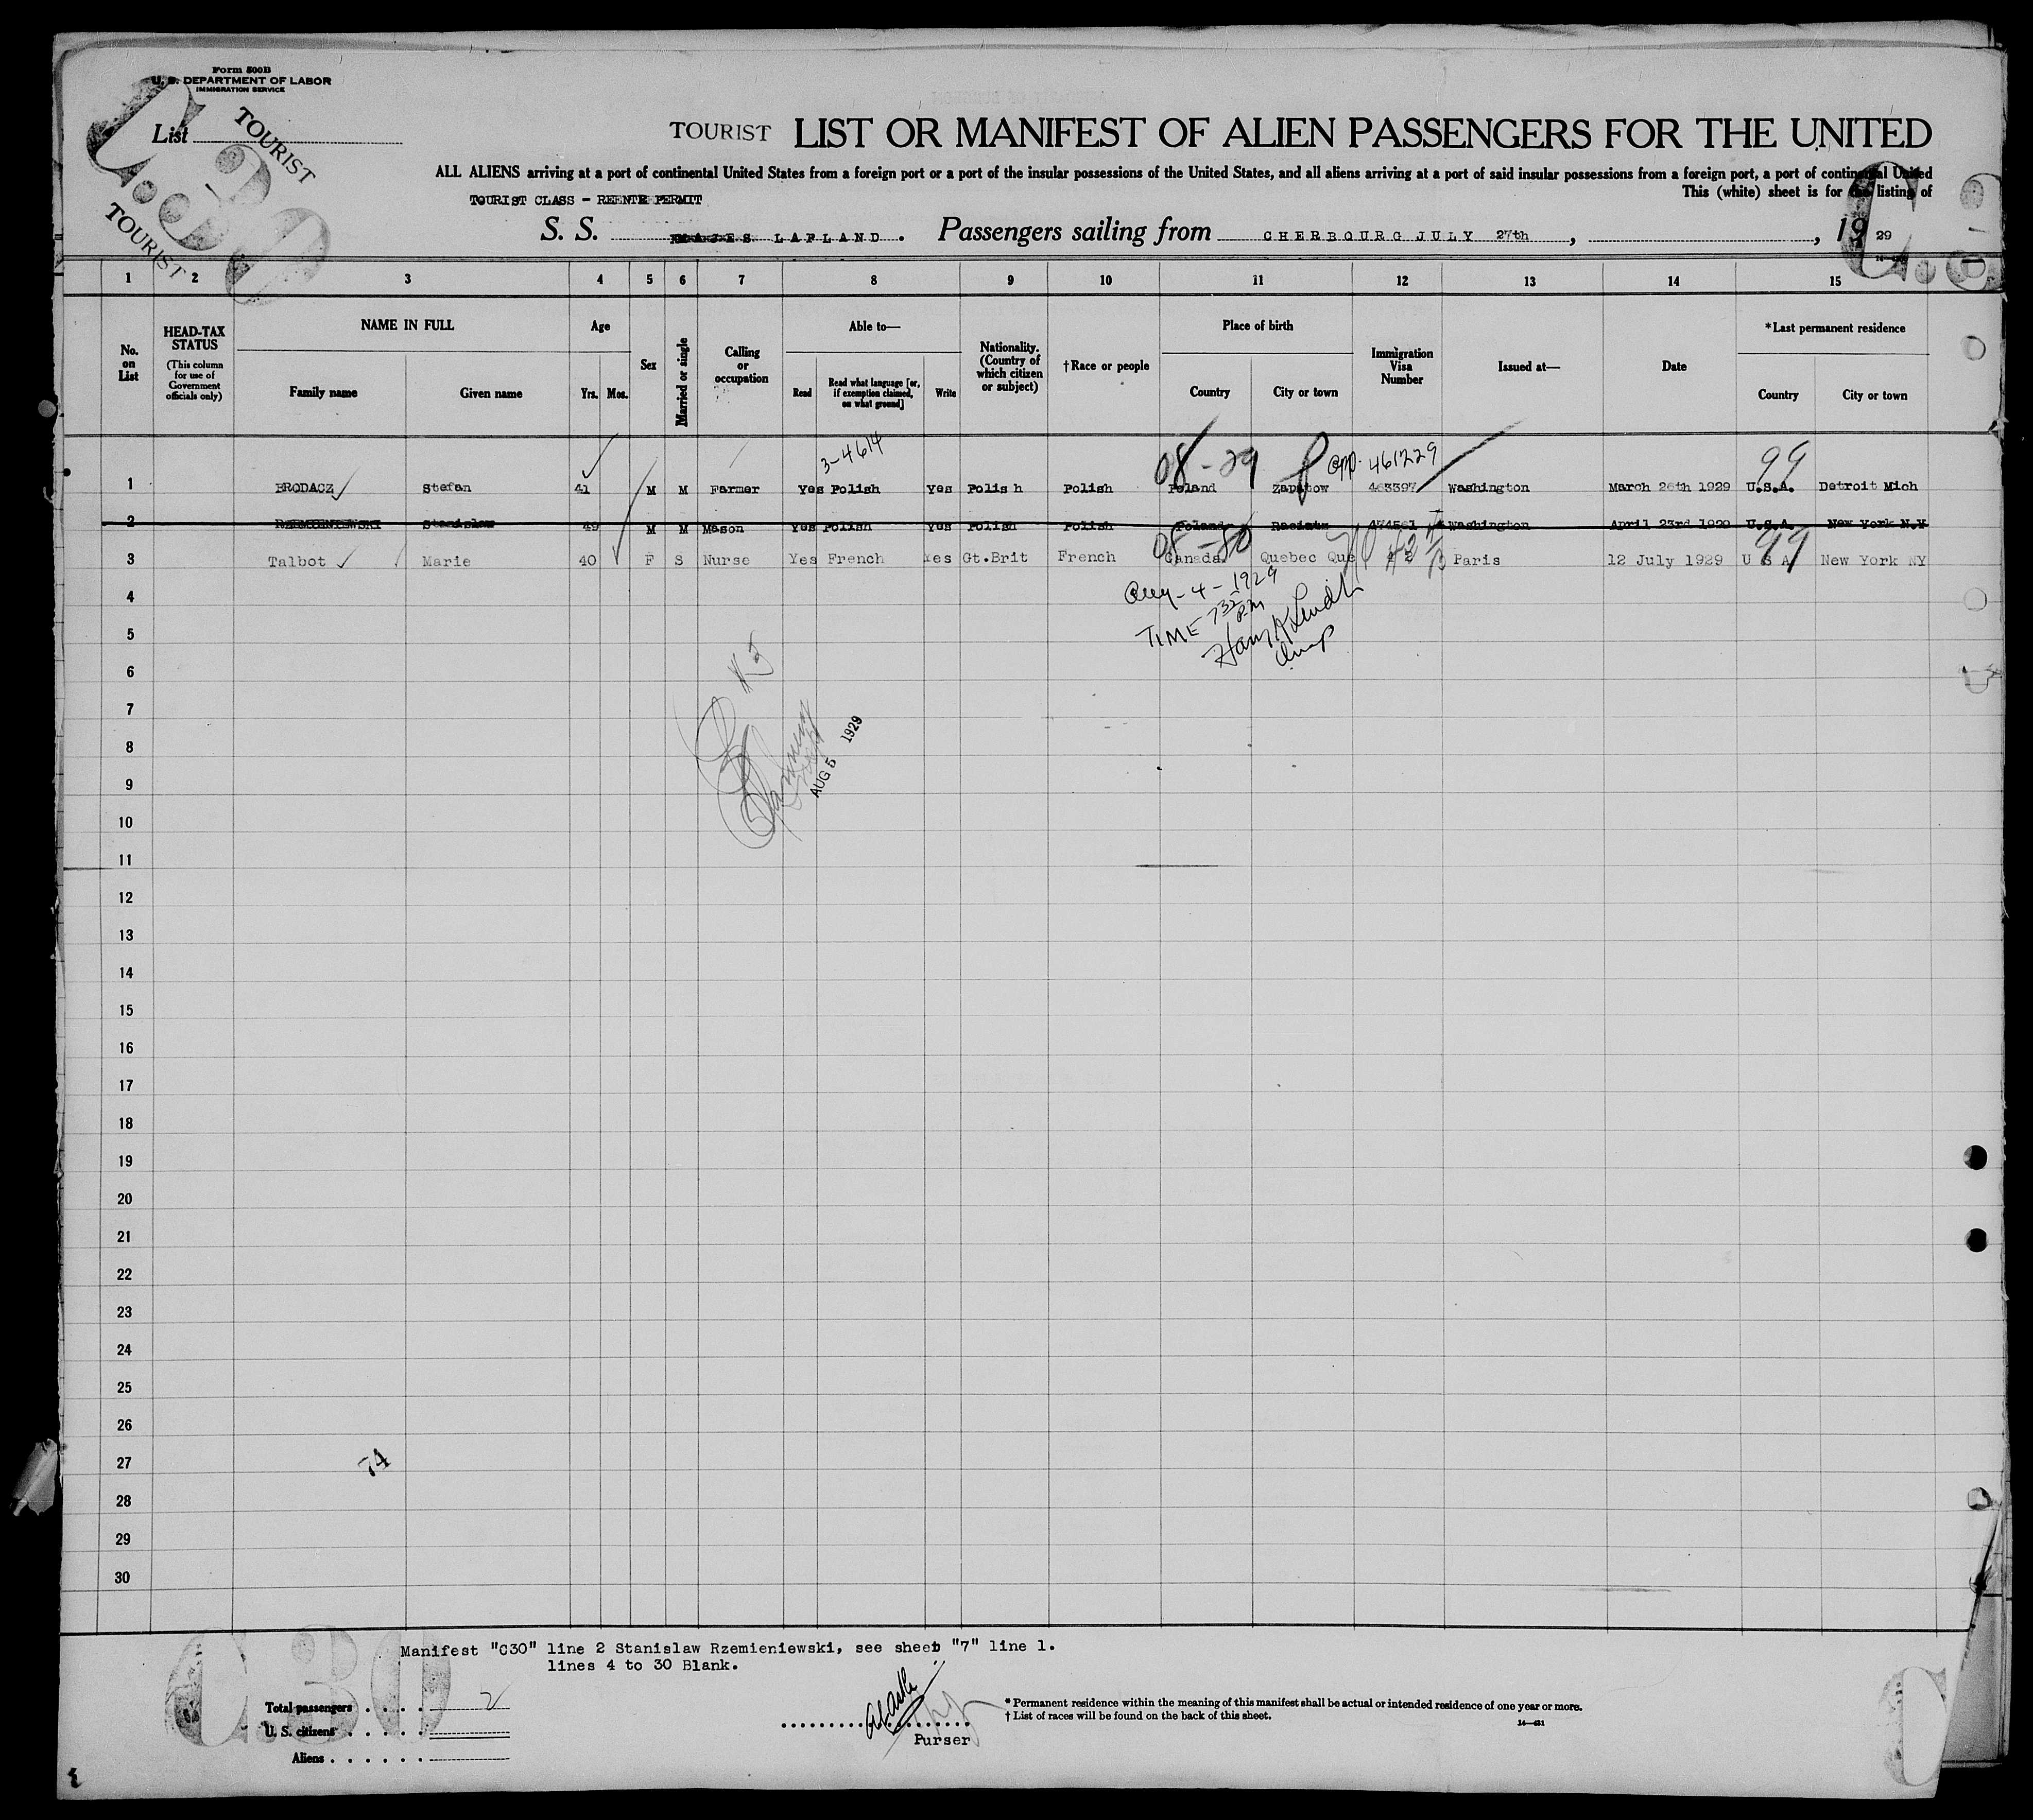 Form 500B
U. S. DEPARTMENT OF LABOR
IMMIGRATION SERVICE
List
TOURIST
TOURIST
C 30
TOURIST LIST OR MANIFEST OF ALIEN PASSENGERS FOR THE UNITED
ALL ALIENS arriving at a port of continental United States from a foreign port or a port of the insular possessions of the United States, and all aliens arriving at a port of said insular possessions from a foreign port, a port of continental United
This (white) sheet is for the listing of
TOURIST CLASS - REENTR PERMIT
S. S. LAPLAND. Passengers sailing from CHERBOURG JULY 27th, , 19 29
1 2 3 4 5 6 7 8 9 10 11 12 13 14 15
No. on List
HEAD-TAX STATUS
(This column for use of Government officials only)
NAME IN FULL
Family name
Given name
Age
Yrs. Mos.
Sex
Married or single
Calling or occupation
Able to—
Read
Read what language [or, if exemption claimed, on what ground]
Write
Nationality. (Country of which citizen or subject)
†Race or people
Place of birth
Country
City or town
Immigration Visa Number
Issued at—
Date
*Last permanent residence
Country
City or town
3-4614
08-29
461229
99
1 BRODACZ Stefan 41 M M Farmer Yes Polish Yes Polis h Polish Poland Zapatow 463397 Washington March 26th 1929 U.S.A. Detroit Mich
2 RZEMIENIEWSKI Stanislaw 49 M M Mason Yes Polish Yes Polish Polish Poland Washington April 23rd 1929 U.S.A. New York N.Y
08-80
99
3 Talbot Marie 40 F S Nurse Yes French Yes Gt.Brit French Canada Quebec Que Paris 12 July 1929 U S A New York NY
4
Aug-4-1929
5
TIME 732 PM
6
7
8
AUG 5 1929
9
10
11
12
13
14
15
16
17
18
19
20
21
22
23
24
25
26
27
74
28
29
30
Manifest "C30" line 2 Stanislaw Rzemieniewski, see sheet "7" line 1.
lines 4 to 30 Blank.
C 30
Total passengers 2
U. S. citizens
Aliens
Purser
* Permanent residence within the meaning of this manifest shall be actual or intended residence of one year or more.
† List of races will be found on the back of this sheet.